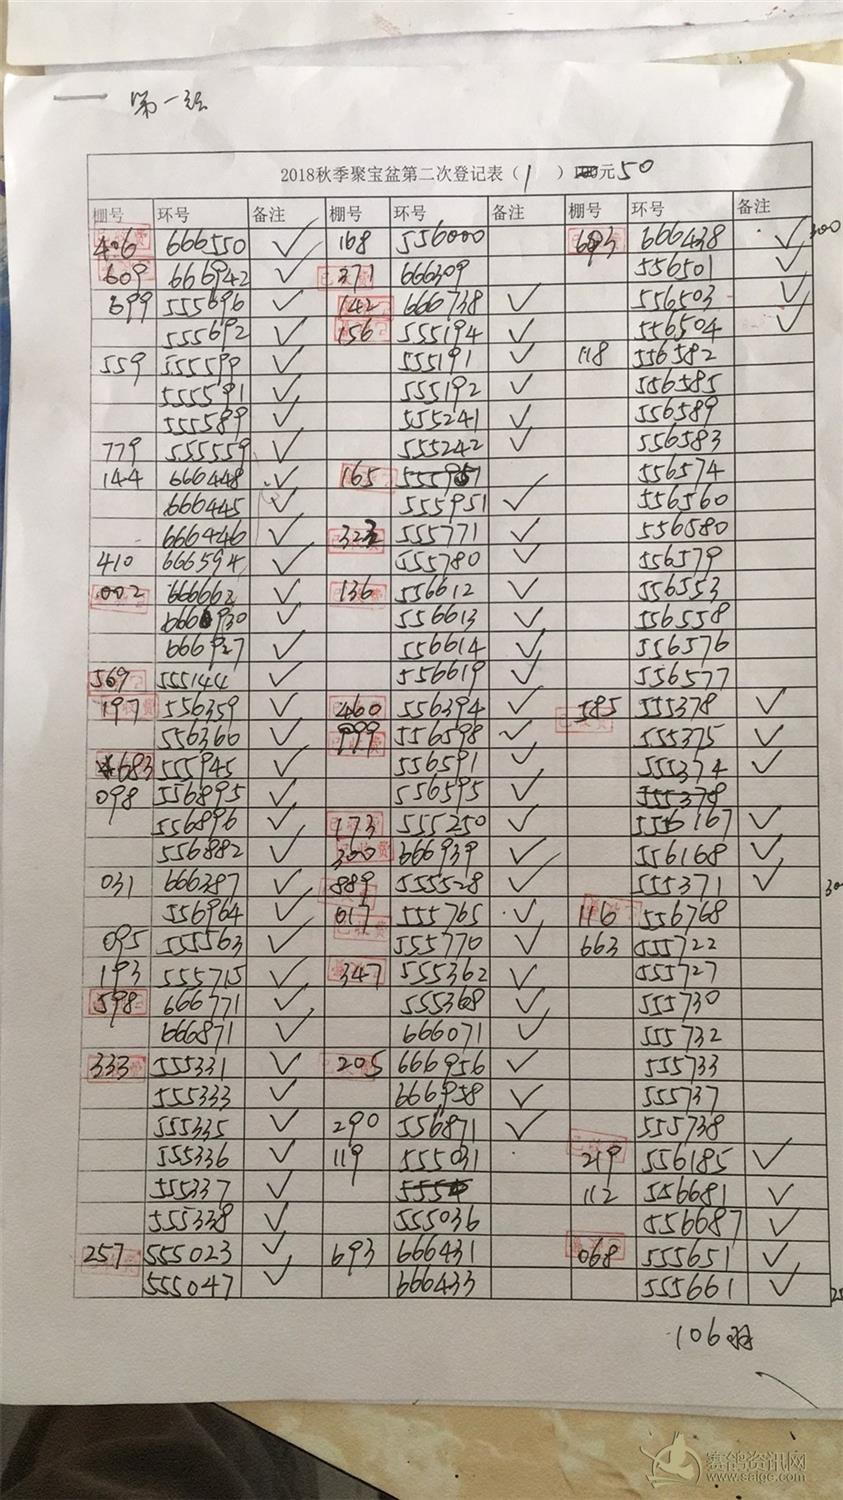 一 第一坛
2018秋季聚宝盆第二次登记表（1）元50
棚号 环号 备注 棚号 环号 备注 棚号 环号 备注
406 666550 ✓ 168 556000 693 666438 ✓ 300
609 666942 ✓ 371 666309 556501 ✓
699 555696 ✓ 142 666738 ✓ 556503 ✓
555692 ✓ 156 555194 ✓ 556504 ✓
559 555599 ✓ 555191 ✓ 118 556582
555591 ✓ 555192 ✓ 556585
555589 ✓ 555241 ✓ 556589
779 555559 ✓ 555242 ✓ 556583
144 666448 ✓ 165 555957 556574
666445 ✓ 555951 ✓ 556560
666446 ✓ 323 555771 ✓ 556580
410 666594 ✓ 555780 ✓ 556579
002 666662 ✓ 136 556612 ✓ 556553
666930 ✓ 556613 ✓ 556558
666927 ✓ 556614 ✓ 556576
569 555144 ✓ 556619 ✓ 556577
197 556359 ✓ 460 556394 ✓ 585 555378 ✓
556360 ✓ 999 556598 ✓ 555375 ✓
683 555945 ✓ 556591 ✓ 555374 ✓
098 556895 ✓ 556595 ✓ 555378
556896 ✓ 173 555250 ✓ 556167 ✓
556882 ✓ 300 666939 ✓ 556168 ✓
031 666387 ✓ 889 555528 ✓ 555371 ✓ 30
556964 ✓ 017 555765 ✓ 116 556768
095 555563 ✓ 555770 ✓ 663 555722
193 555715 ✓ 347 555362 ✓ 555727
598 666771 ✓ 555368 ✓ 555730
666871 ✓ 666071 ✓ 555732
333 555331 ✓ 205 666956 ✓ 555733
555333 ✓ 666958 ✓ 555737
555335 ✓ 290 556871 ✓ 555738
555336 ✓ 119 555031 219 556185 ✓
555337 ✓ 5554 112 556681 ✓
555338 ✓ 555036 556687 ✓
257 555023 ✓ 693 666431 068 555651 ✓
555047 ✓ 666433 555661 ✓ 25
106羽
赛鸽资讯网
www.saige.com